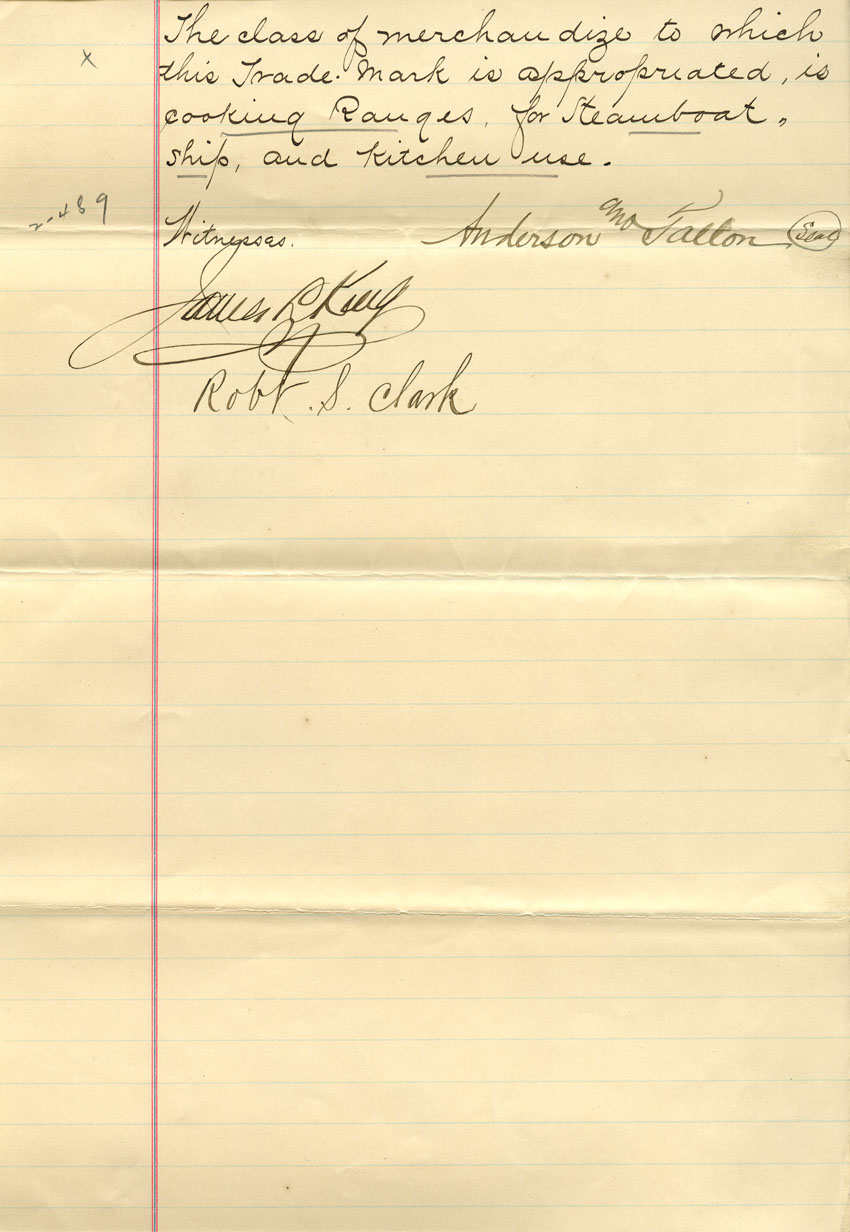 x
The class of merchandize to which
this Trade-Mark is appropriated, is
cooking Ranges, for Steamboat,
ship, and kitchen use.
2-489
Witnesses. Anderson Fallon Seal
James R King
Robt. S. Clark